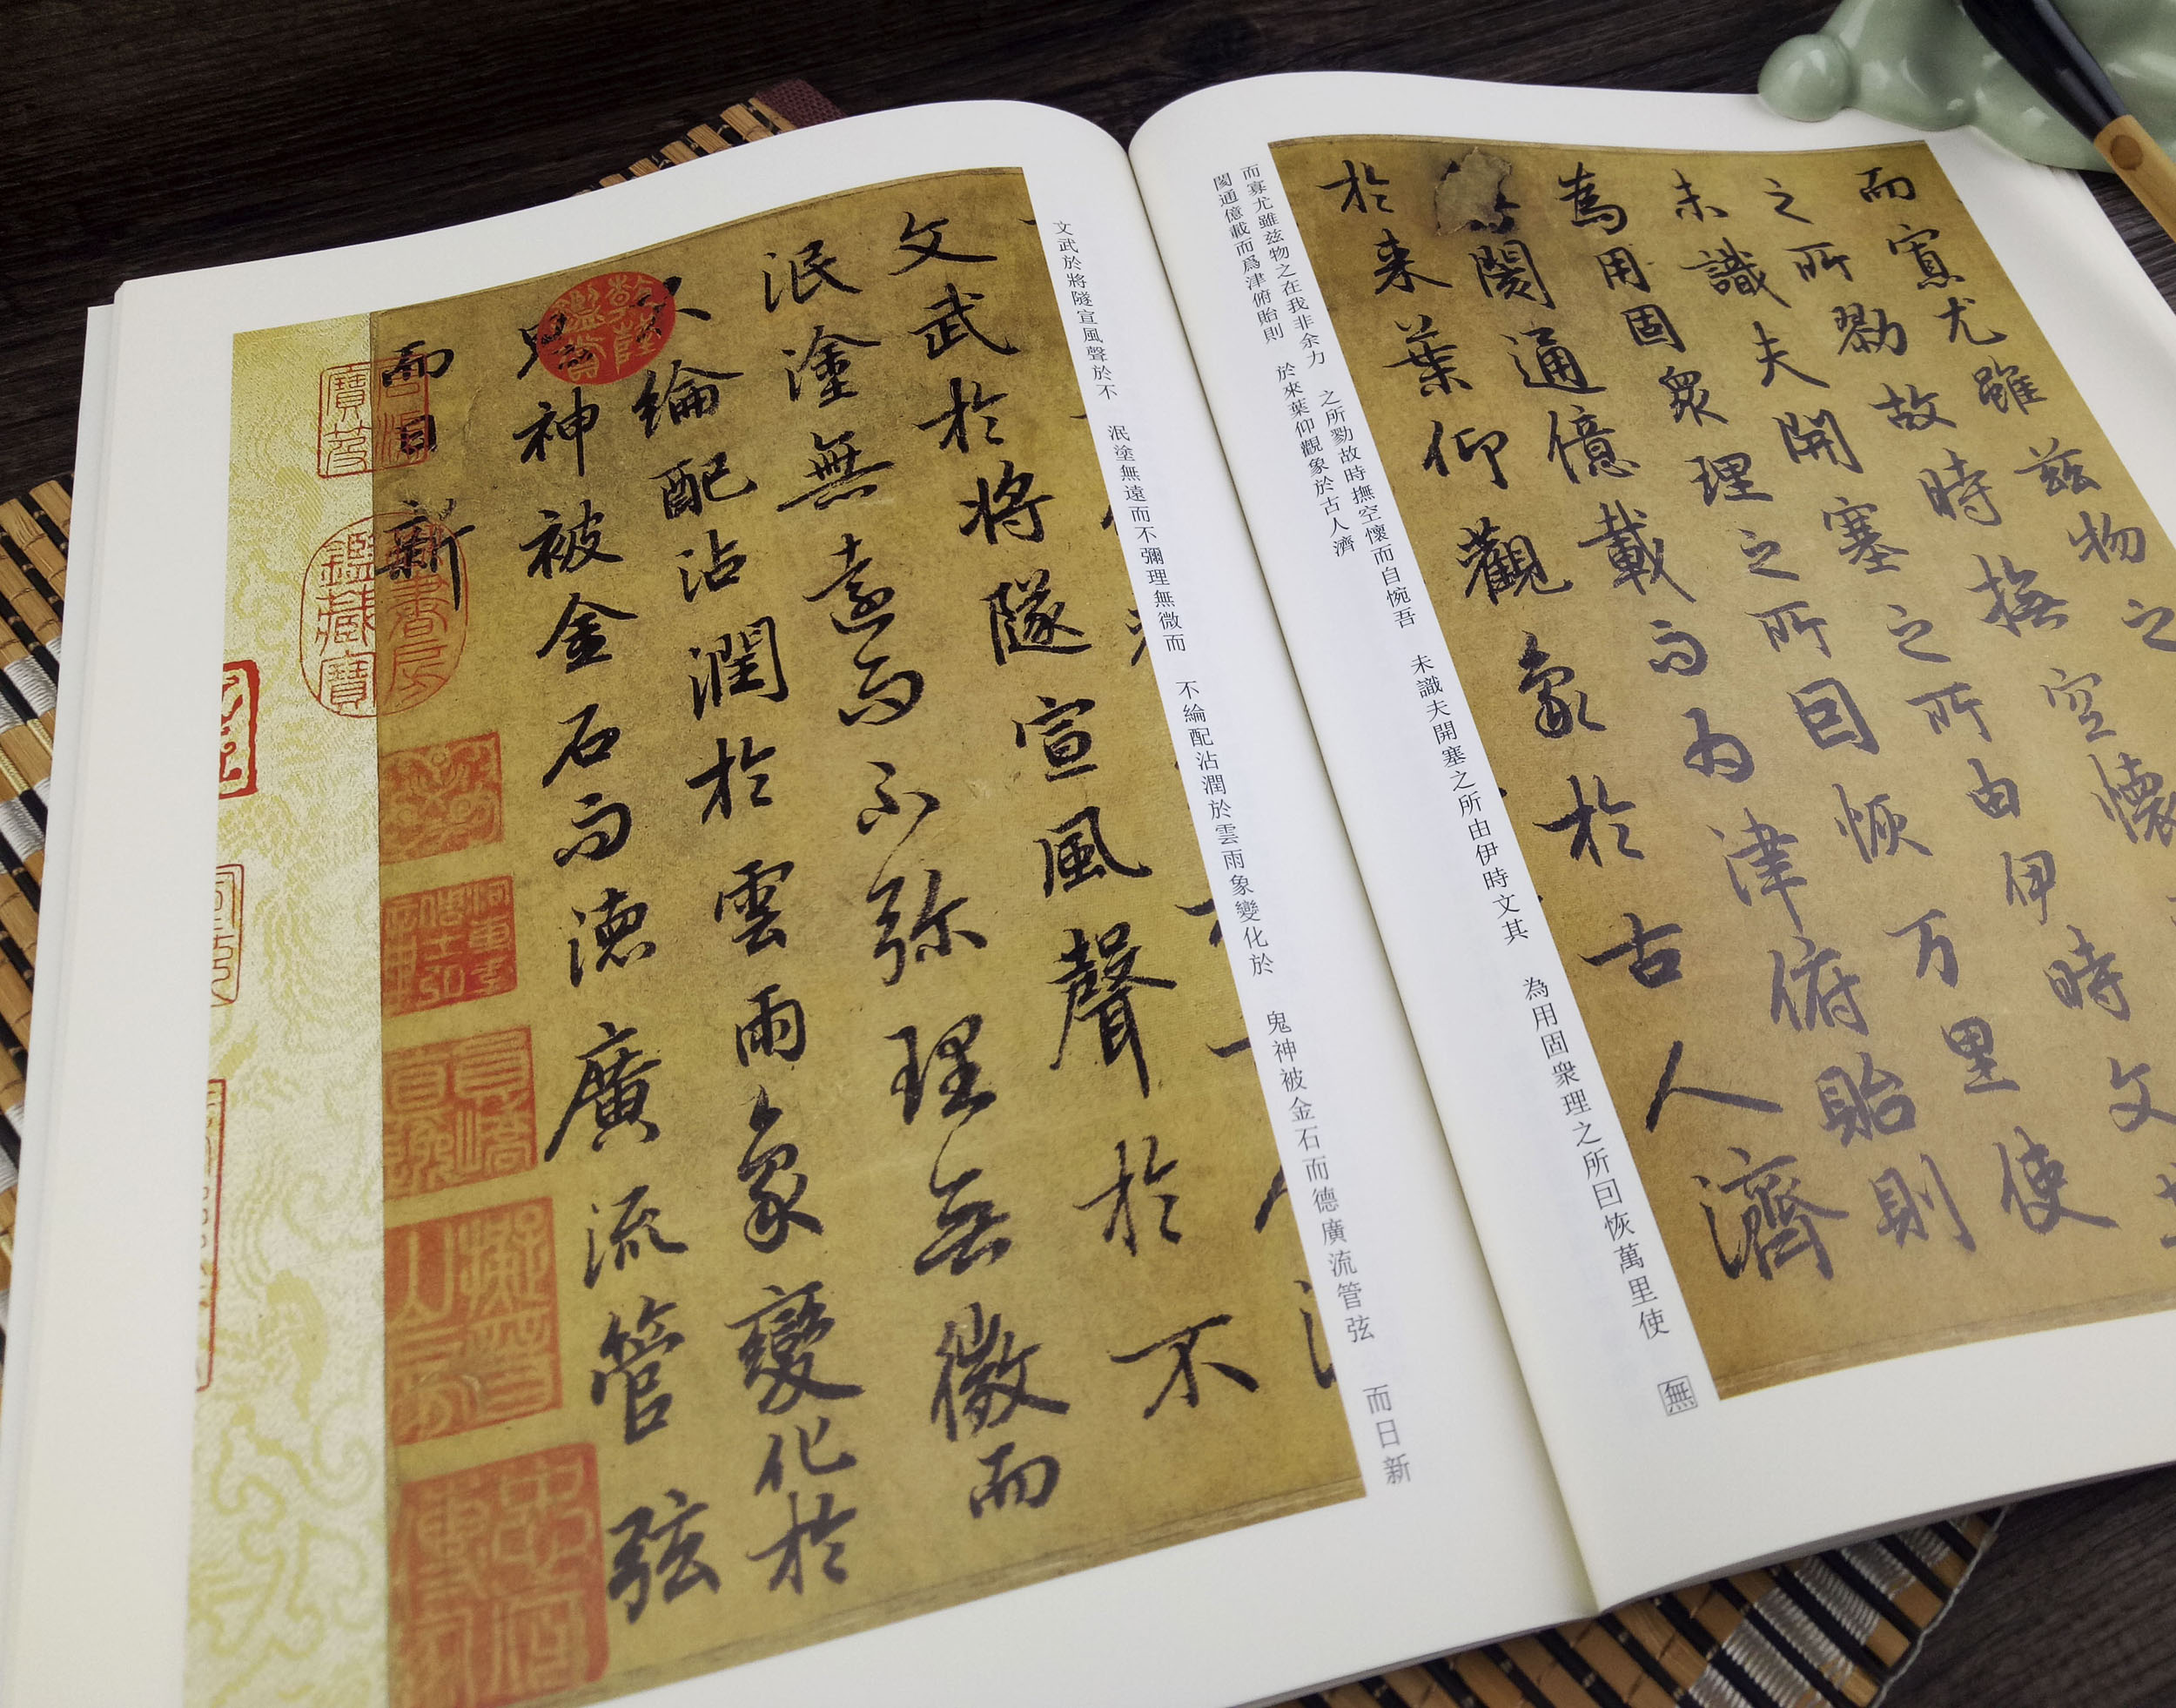 而寡尤雖茲物之
之所勠故時撫空懷
未識夫開塞之所由伊時文
為用固衆理之所囙恢万里使
閡通億載而为津俯貽則
於来葉仰觀象於古人濟
而寡尤雖茲物之在我非余力
之所勠故時撫空懷而自惋吾
未識夫開塞之所由伊時文其
為用固衆理之所囙恢萬里使
無
閡通億載而爲津俯貽則
於來葉仰觀象於古人濟
文武於將隧宣風聲於不
泯塗無遠而不弥理無微而
綸配沾潤於雲雨象變化於
神被金石而德廣流管弦
而日新
文武於將隧宣風聲於不
泯塗無遠而不彌理無微而
不綸配沾潤於雲雨象變化於
鬼神被金石而德廣流管弦
而日新
乾隆鑑賞
石渠寶笈
御書房鑑藏寶